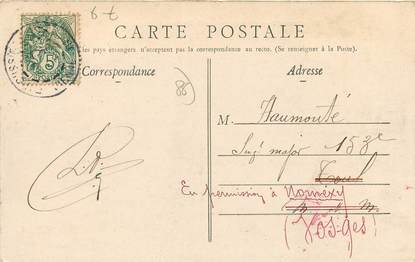 CARTE POSTALE
les pays étrangers n'acceptent pas la correspondance au recto. (Se renseigner à la Poste).
Correspondance
Adresse
88
M. Haumonté
Sergt major 153e
Toul
En permission à Nomexy
(Vosges)
5